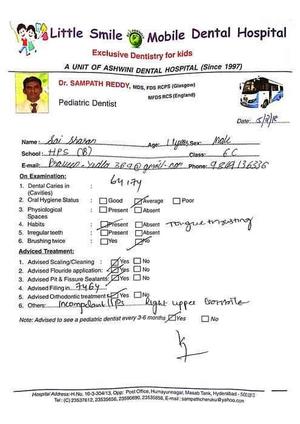 Little Smile Mobile Dental Hospital
Exclusive Dentistry for kids
A UNIT OF ASHWINI DENTAL HOSPITAL (Since 1997)
Dr. SAMPATH REDDY, MDS, FDS RCPS (Glasgow)
MFDS RCS (England)
Pediatric Dentist
Date:
Name: Sai 11 years Sex: Male
School: HPS (B) Class: 6C
E-mail: @gmail.com Phone:
On Examination:
1. Dental Caries in (Cavities) 64,74
2. Oral Hygiene Status Good Average Poor
3. Physiological Spaces Present Absent
4. Habits Present Absent Tongue thrusting
5. Irregular teeth Present Absent
6. Brushing twice Yes No
Adviced Treatment:
1. Advised Scaling/Cleaning: Yes No
2. Advised Flouride application: Yes No
3. Advised Pit & Fissure Sealants: Yes No
4. Advised Filling in
5. Advised Orthodontic treatment Yes No
6. Others: Incompetent lips Right upper
Note: Advised to see a pediatric dentist every 3-6 months Yes No
Hospital Address: H.No. 16-3-304/13, Opp: Post Office, Humayunnagar, Masab Tank, Hyderabad -
Tel: (C) 23537612, 23535656, 23590690, 23535656, E-mail: sampathchenuku@yahoo.com